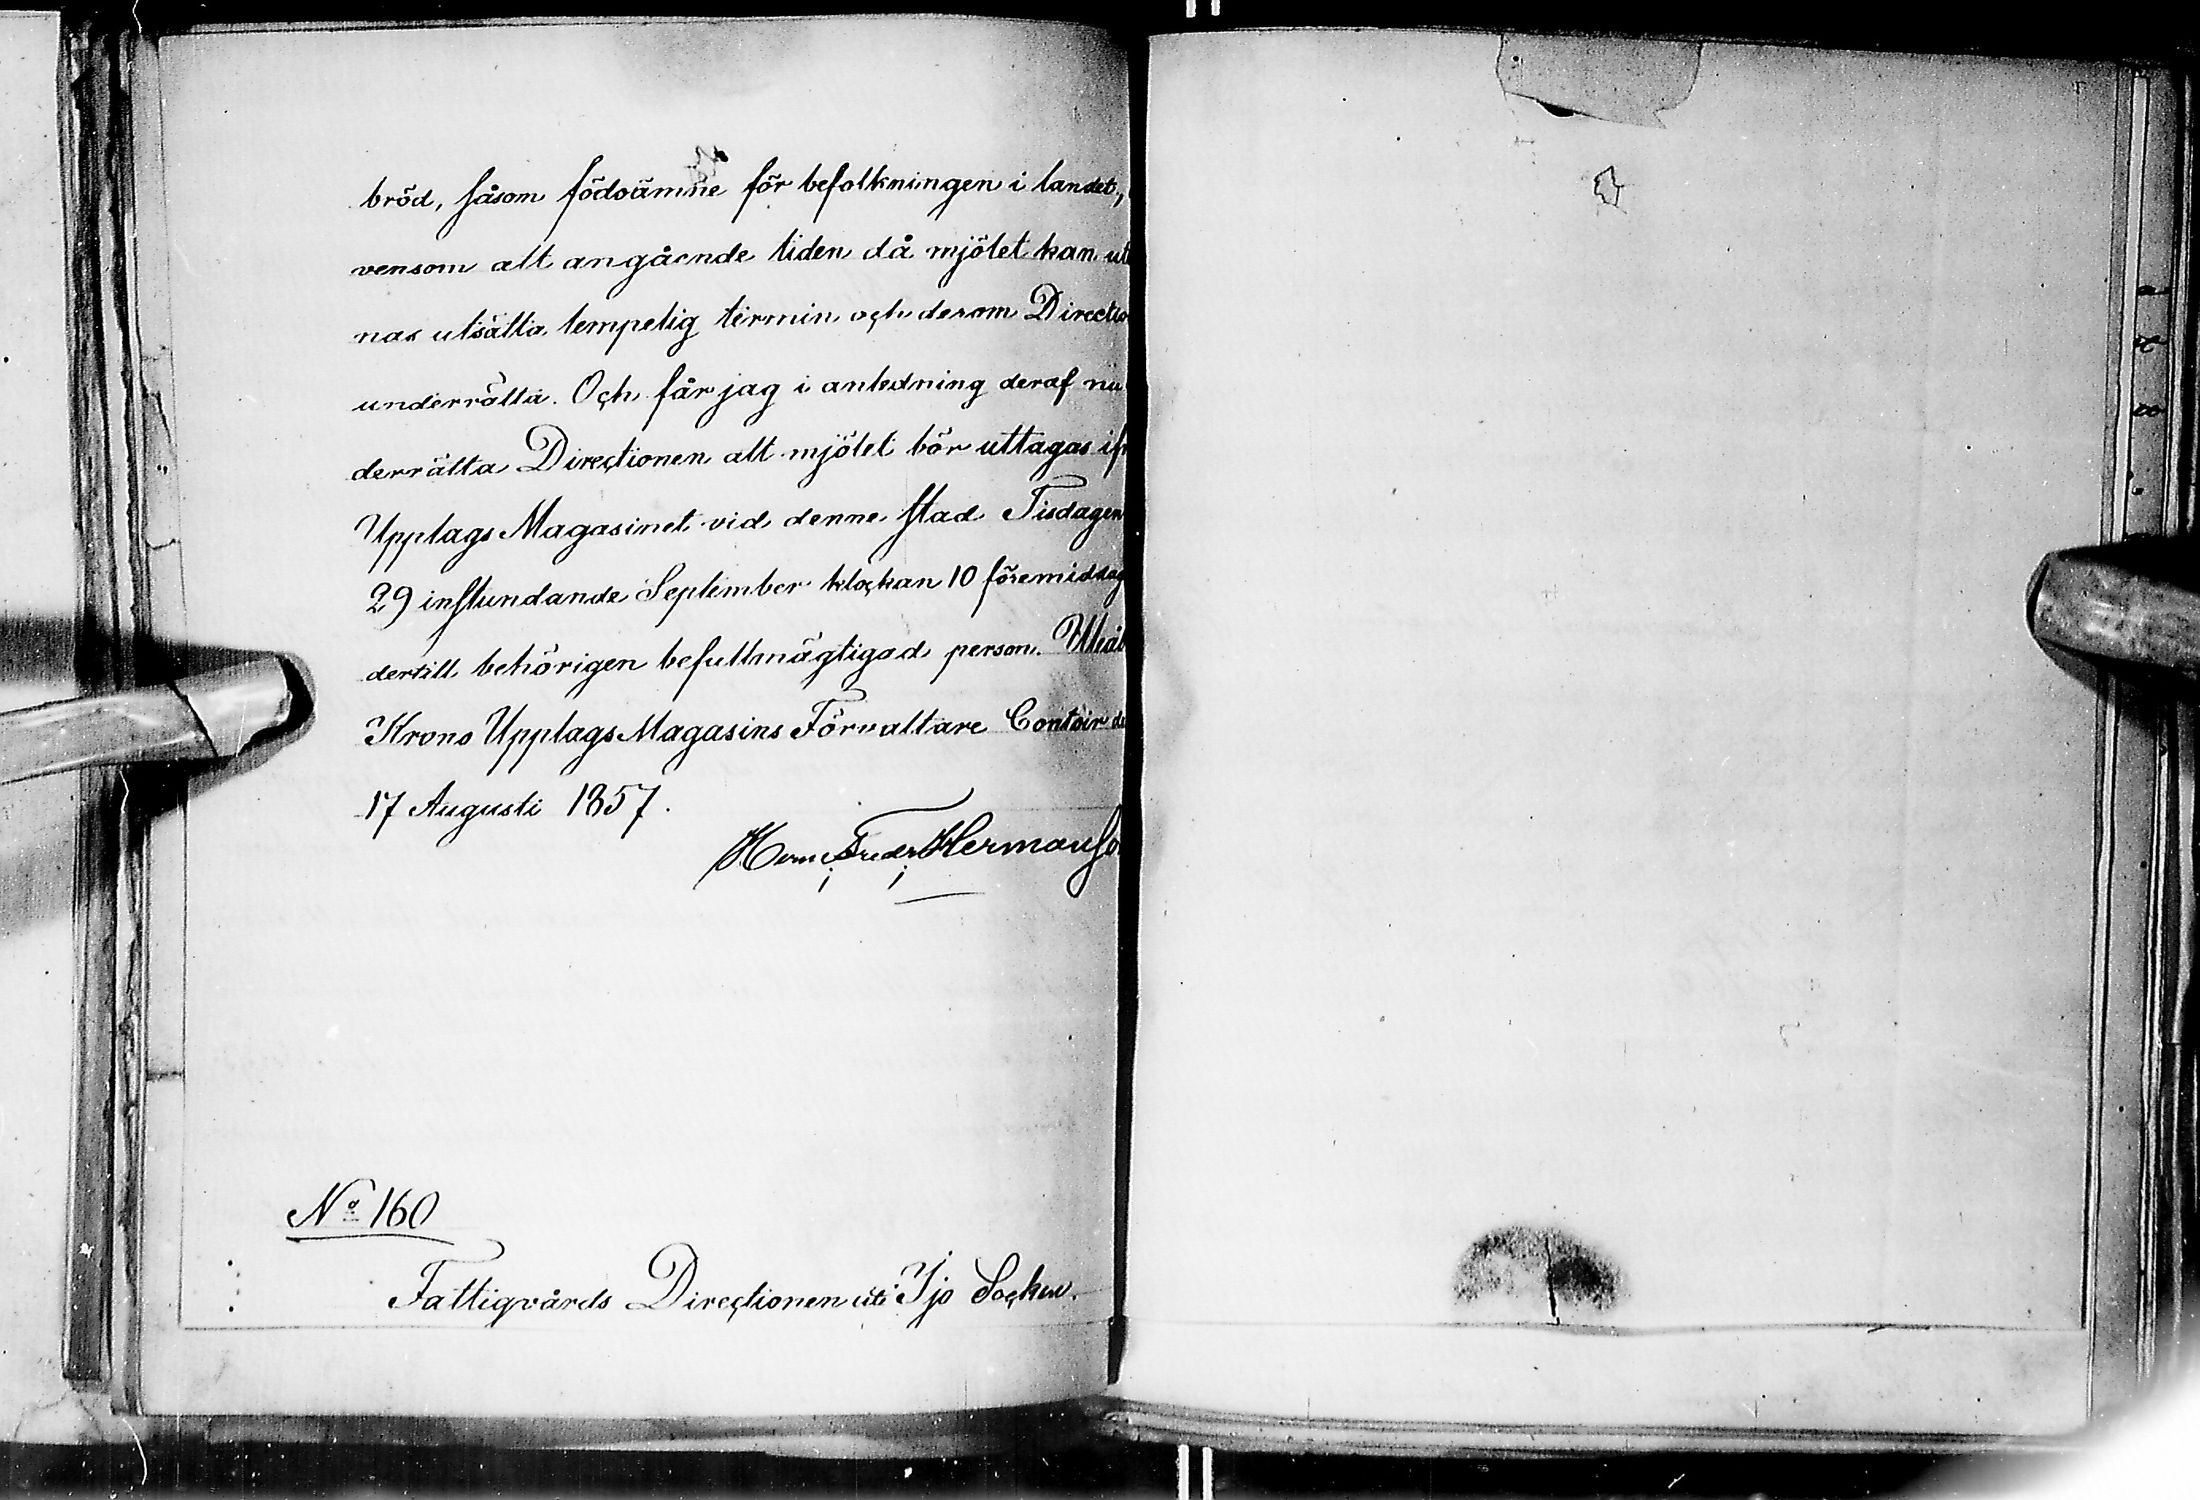 bröd, såsom födoämne för befolkningen i landet,
vensom att angående tiden då mjölet kan ut
nas utsätta lempelig termin och derom Directio
underrätta. Och får jag i anledning deraf nu
derrätta Directionen att mjölet bör uttagas if
Upplags Magasinet vid denne stad Tisdagen
29 instundande September klockan 10 föremiddag
dertill behörigen befullmägtigad person. Uleåb
Krono Upplags Magasins Förvaltare Contoir de
17 Augusti 1857.
Herm Fredr Hermanso
No 160
Fattigvårds Directionen uti Ijo Socken.